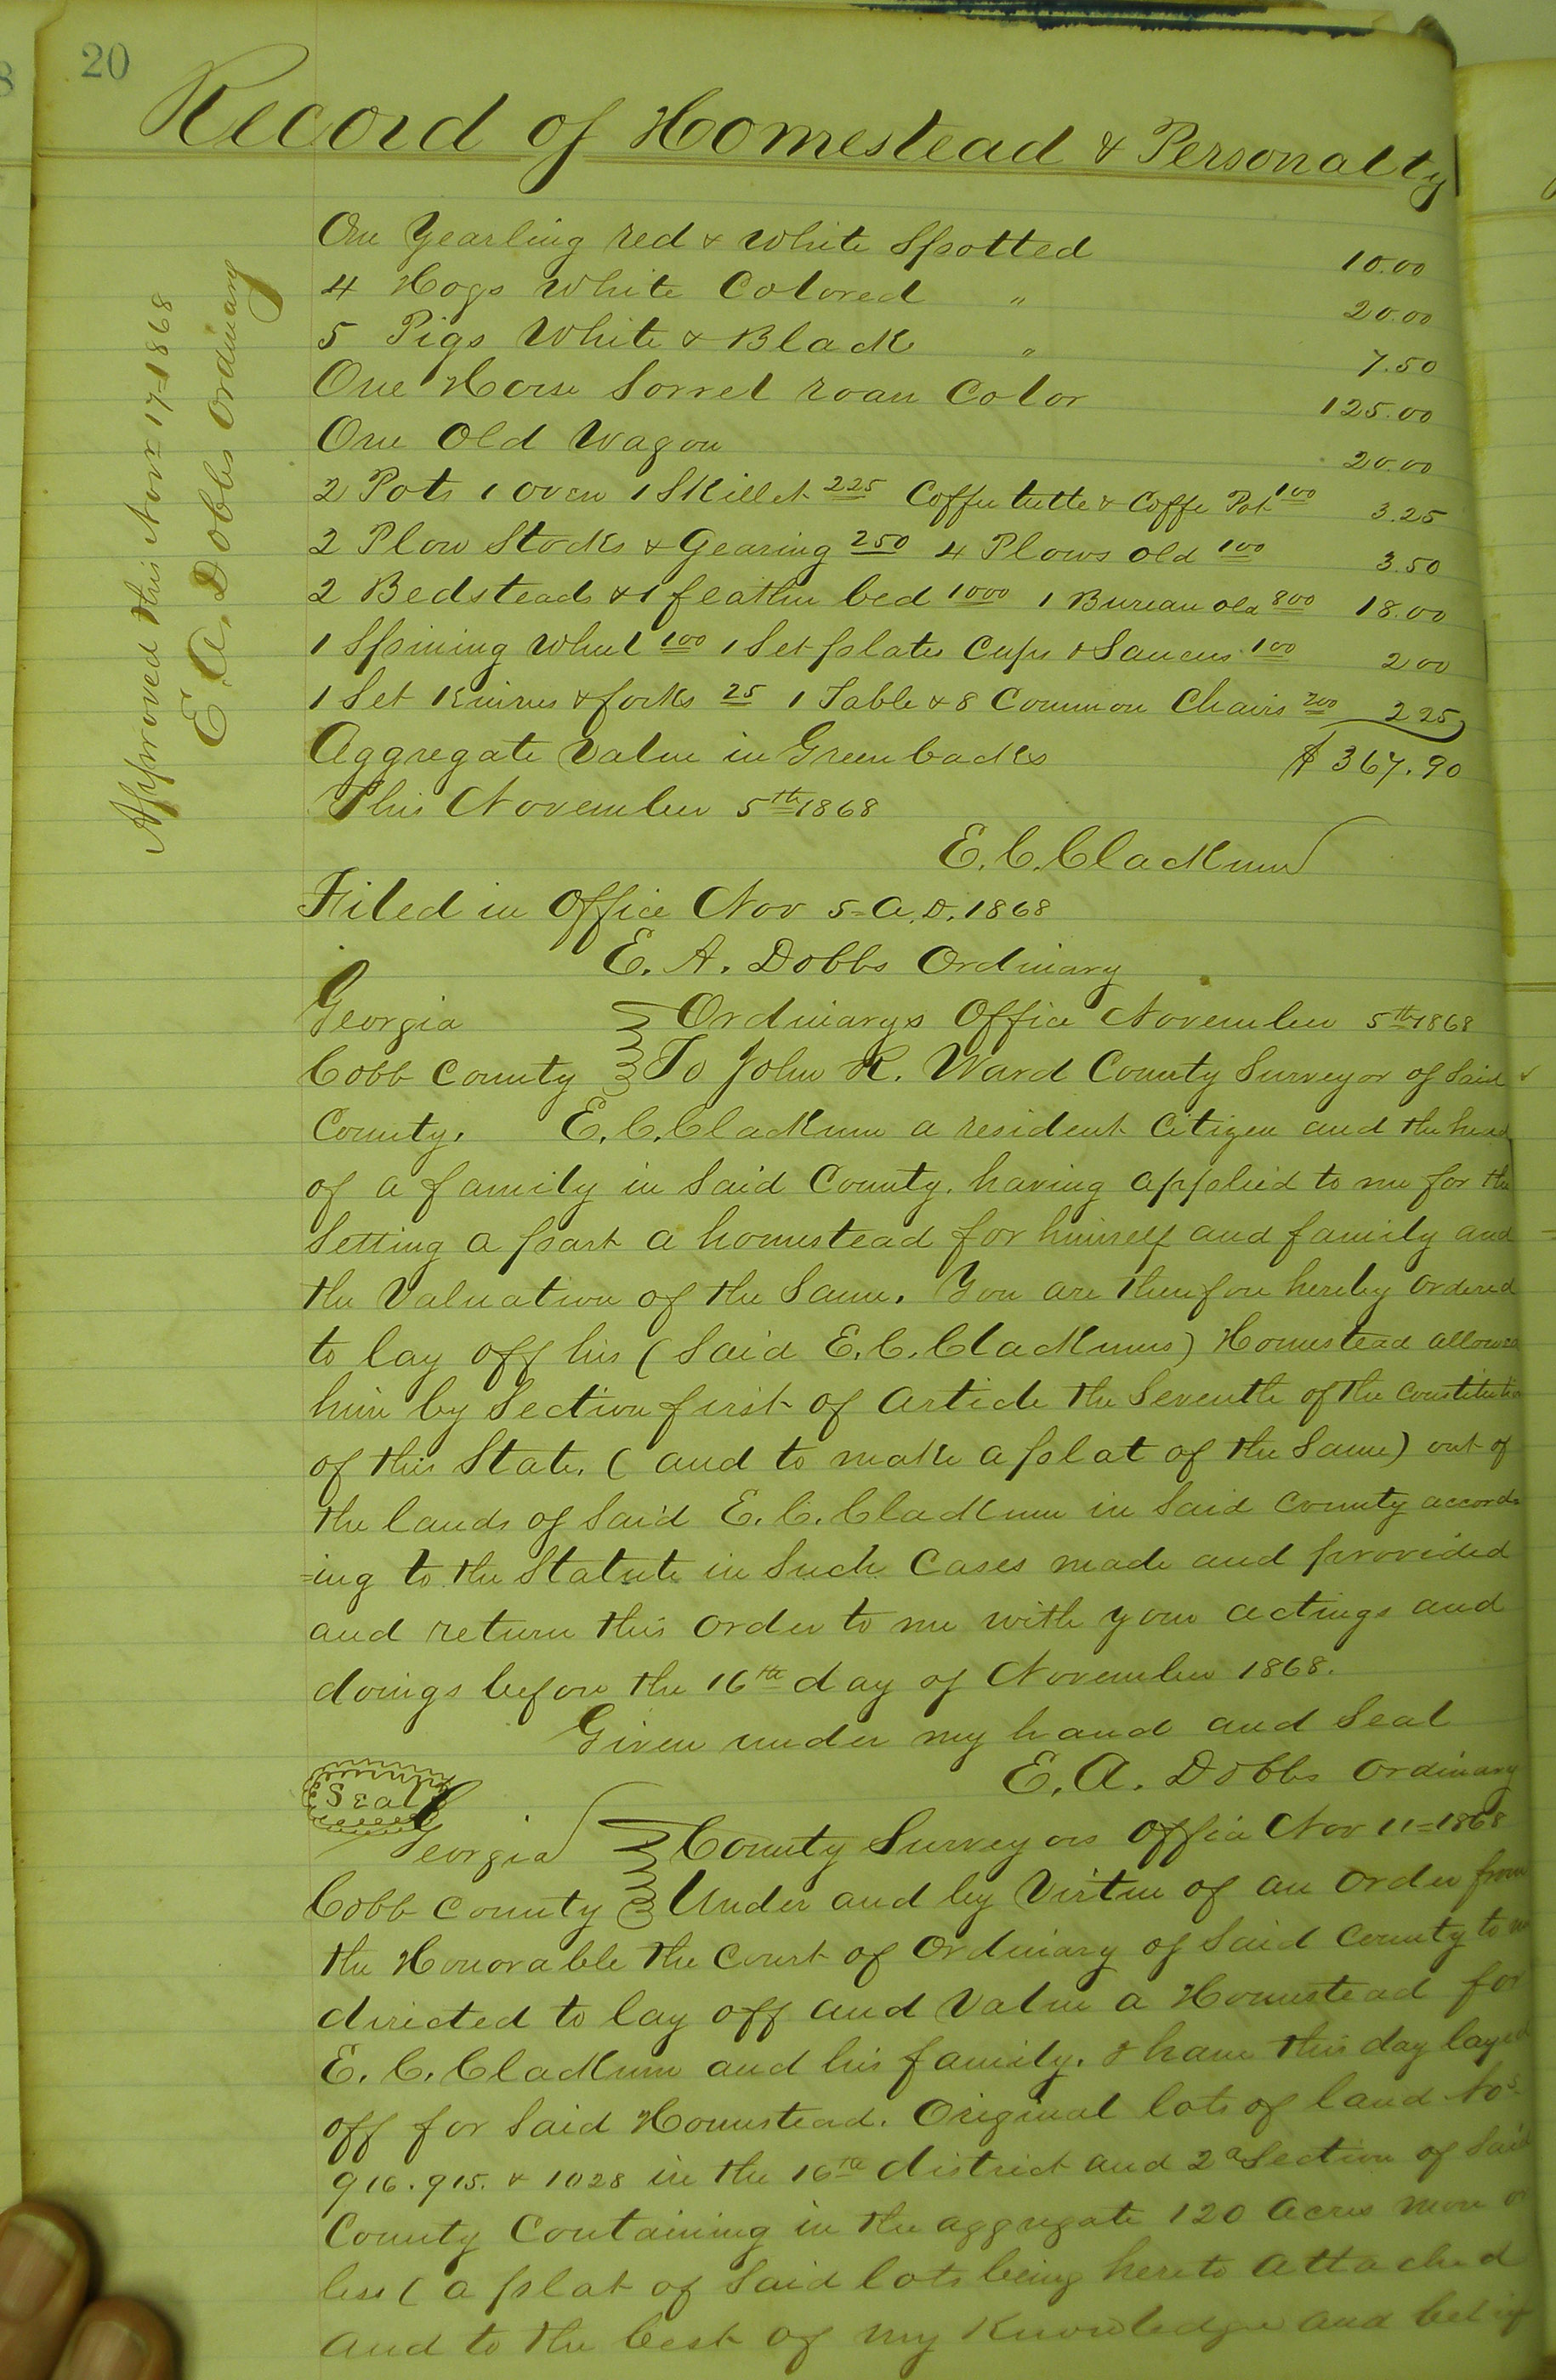 20
Record of Homestead & Personalty
One Yearling red & white Spotted 10.00
4 Hogs White Colored " 20.00
5 Pigs White & Black " 7.50
One Horse Sorrel roan Color 125.00
One Old Wagon 20.00
2 Pots 1 oven 1 Skillet 225 Coffee & Coffe Pot 100 3.25
2 Plow Stocks & Gearing 250 4 Plows old 100 3.50
2 Bedsteads & 1 feather bed 1000 1 Bureau old 800 18.00
1 Spining wheel 100 1 Set plates Cups & Saucers 100 200
1 Set Knives & forks 25 1 Table & 8 Common Chairs 200 225
Aggregate Value in Greenbacks $367.90
This November 5th 1868
E. C. Clackum
Filed in Office Nov 5= A.D. 1868
E. A. Dobbs Ordinary
Georgia Ordinarys Office November 5th 1868
Cobb County To John R. Ward County Surveyor of Said
County. E. C. Clackum a resident Citizen and the head
of a family in Said County, having applied to me for the
Setting a part a homestead for himself and family and
the Valuation of the Same. You are therefore hereby ordered
to lay off his (Said E. C. Clackums) Homestead allowed
him by Section first of Article the Seventh of the Constitution
of this State, (and to make a plat of the Same) out of
the lands of Said E. C. Clackum in Said County accord
=ing to the Statute in Such Cases made and provided
and return this order to me with your actings and
doings before the 16th day of November 1868.
Given under my hand and Seal
E. A. Dobbs Ordinary
Seal
Georgia County Surveyors Office Nov 11=1868
Cobb County Under and by Virtue of an Order from
the Honorable the Court of Ordinary of Said County to me
directed to lay off and Value a Homestead for
E. C. Clackum and his family, I have this day layed
off for Said Homestead. Original lots of land Nos
916. 915. & 1028 in the 16th district and 2d Section of Said
County Containing in the aggregate 120 Acres more or
less (a plat of Said lots being hereto attached
and to the best of my Knowledge and belief
Approved this Novr 17-1868
E. A. Dobbs Ordinary